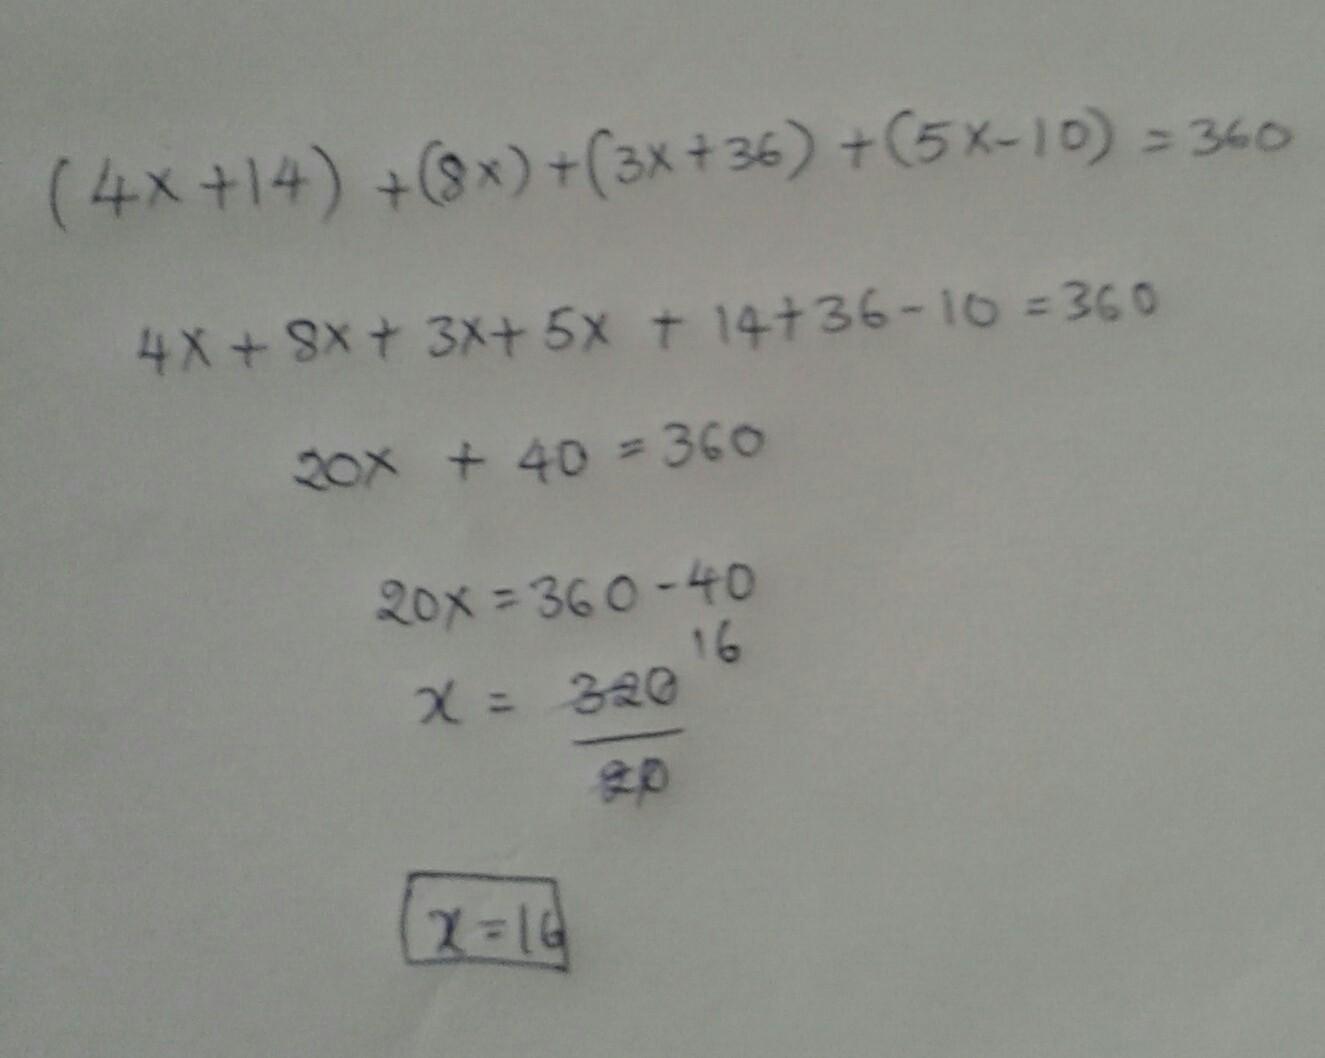 (4x+14) +(8x)+(3x+36) +(5x-10) = 360
4x + 8x + 3x + 5x + 14+36-10 = 360
20x + 40 = 360
20x = 360-40
16
x = 320
20
x=16